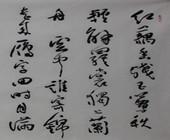 紅藕香殘玉簟秋
輕解羅裳獨上蘭
舟雲中誰寄錦
書來雁字回時月滿